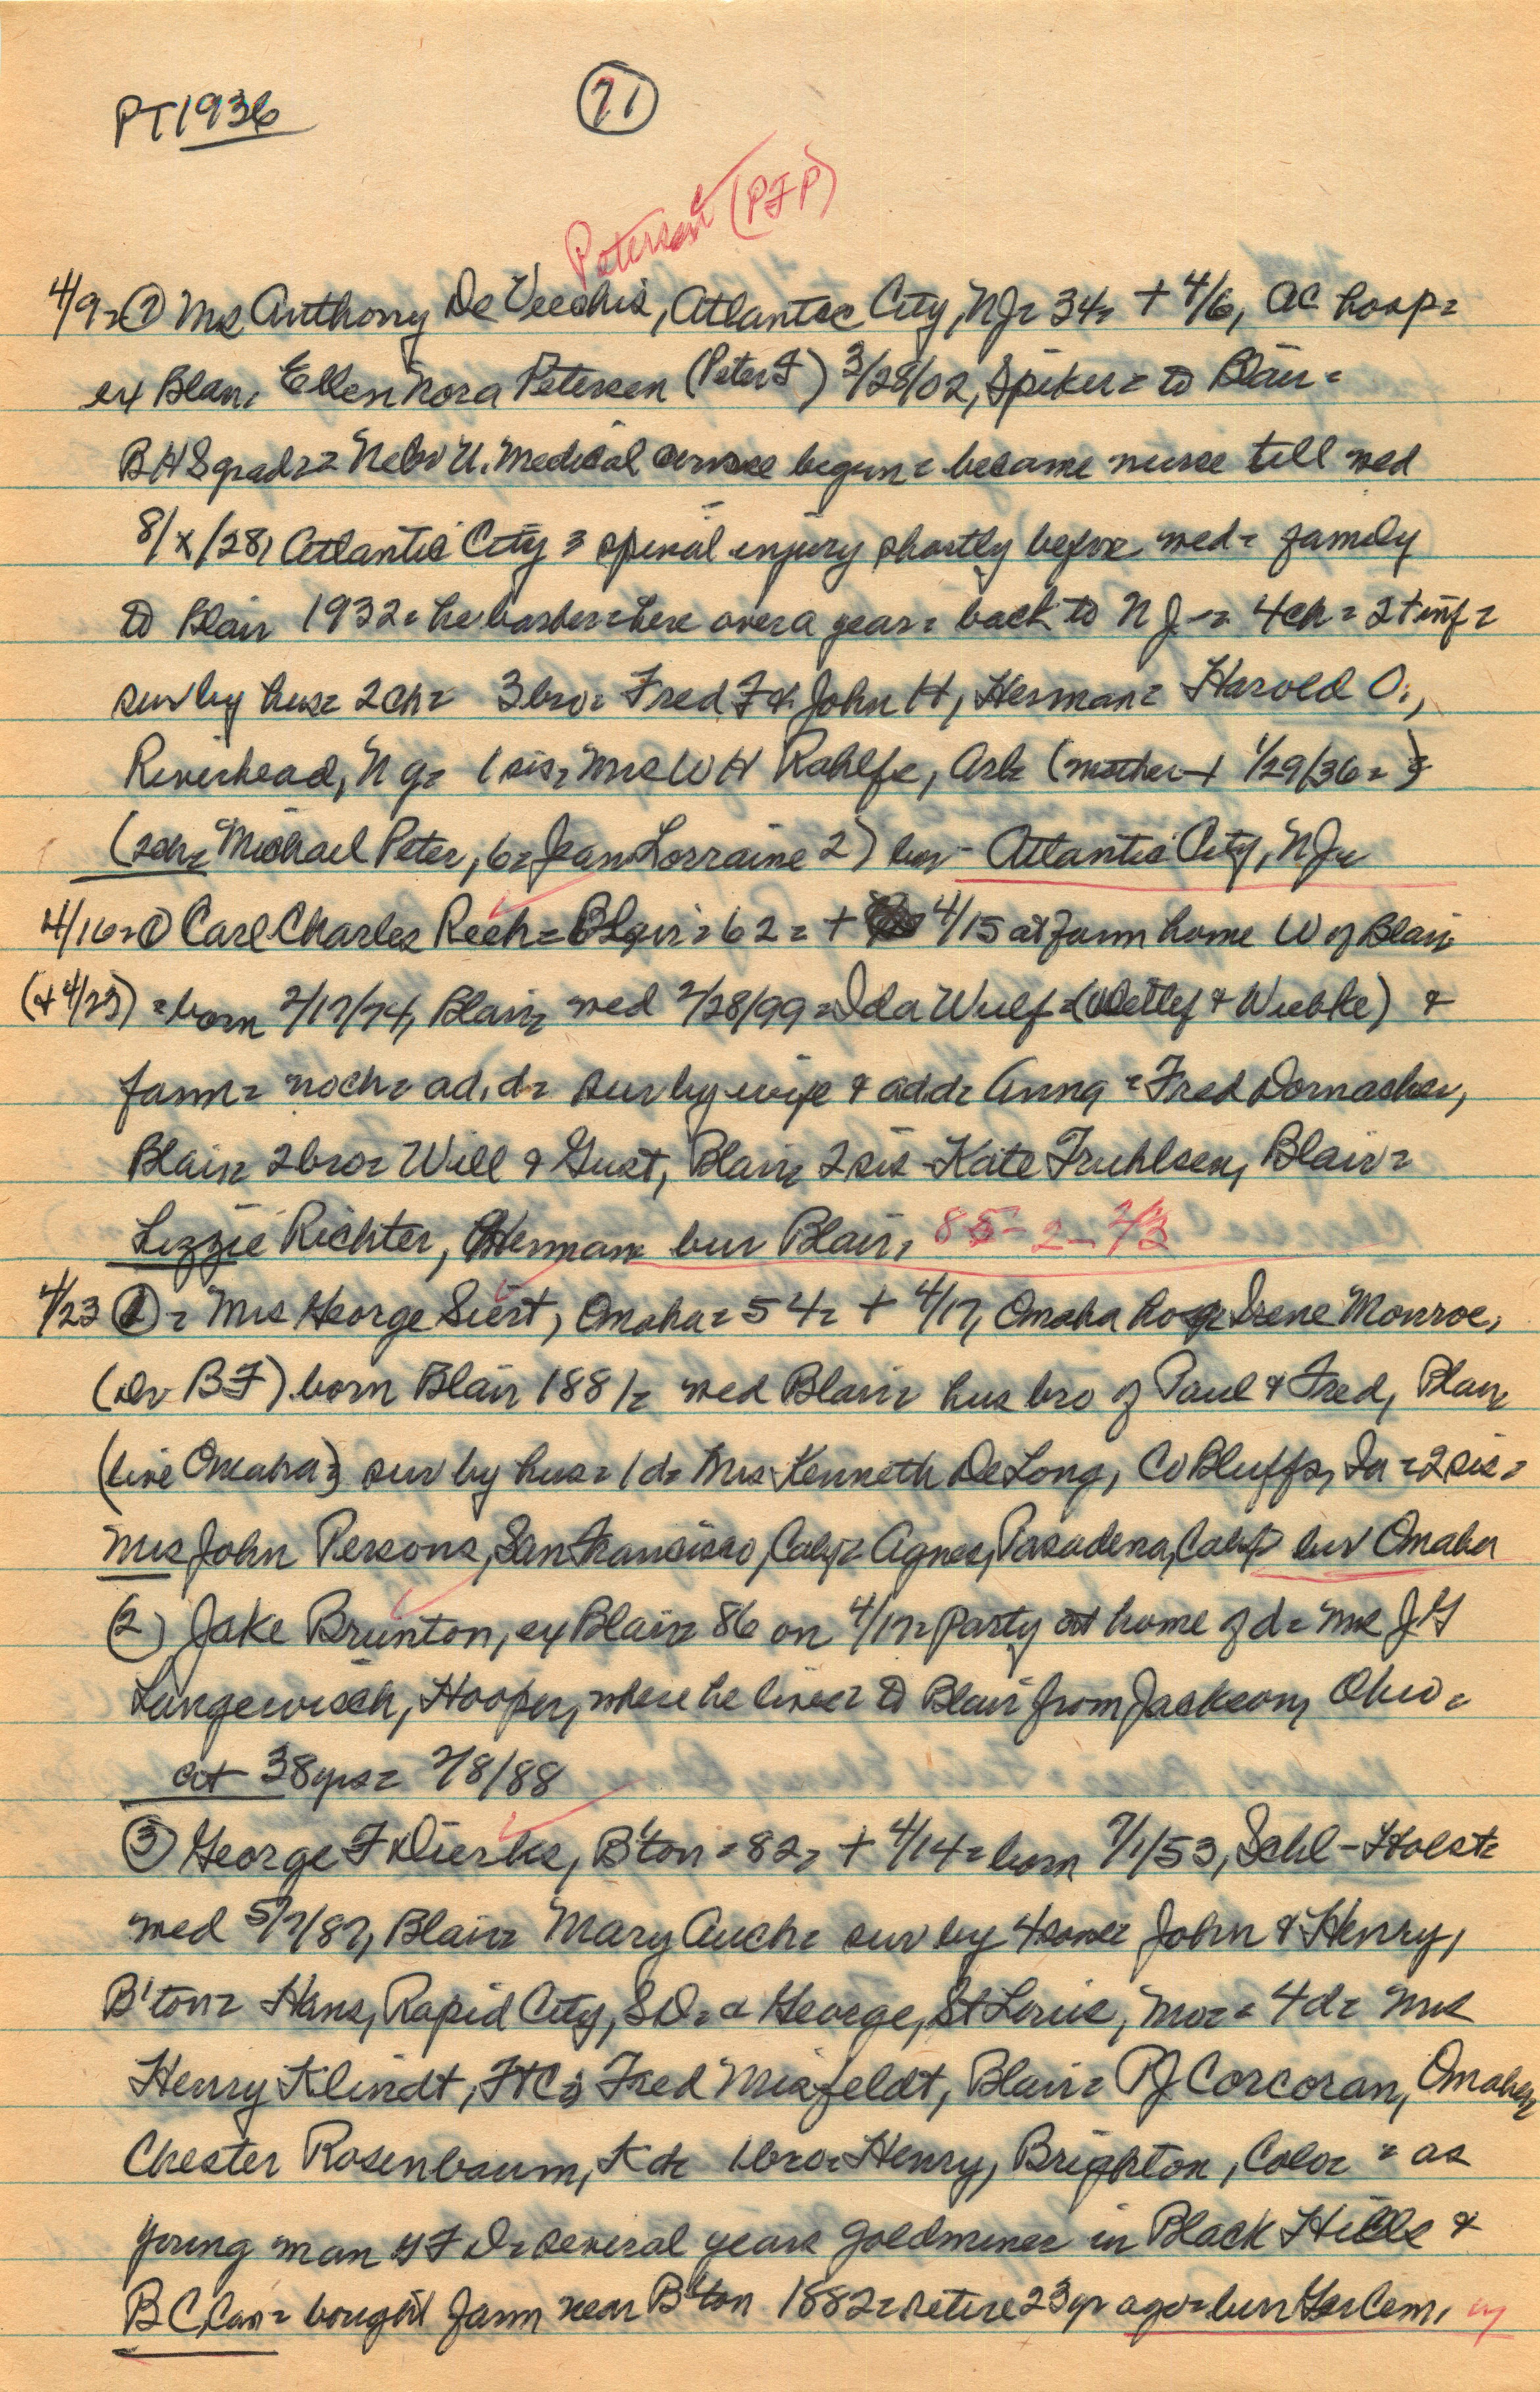 PT1936
71
Petersen (PFP)
4/9= ① Mrs Anthony De Vecchis, Atlantic City, NJ= 34= + 4/6, AC hosp=
ex Blair= Ellen Nora Petersen (Peter F) 3/28/02, Spiker= to Blair=
BHS grad= Nebr U. Medical course begun= became nurse till wed
8/x/28, Atlantic City= spinal injury shortly before wed= family
to Blair 1932= he barber= here over a year= back to NJ= 4ch= 2 + inf=
sur by hus= 2ch= 3bro= Fred F & John H, Herman= Harold O.,
Riverhead, NY= 1 sis, Mrs WH Rahlfs, Arl= (mother + 1/29/36=)
(2ch= Michael Peter, 6= Jean Lorraine 2) bur- Atlantic City, NJ=
4/16= ① Carl Charles Reeh= Blair= 62= + 4/15 at farm home W of Blair
(+ 4/23) = born 2/17/74, Blair= wed 2/28/99= Ida Wulf= (Detlef & Wiebke) &
farm= no ch= ad. d= sur by wife & add= Anna = Fred Dornacker,
Blair= 2bro= Will & Gust, Blair= 2sis- Kate Fruhlsen, Blair=
Lizzie Richter, Herman= bur Blair, 85-2-2/3
4/23 ① = Mrs George Siert, Omaha= 54= + 4/17, Omaha hosp= Irene Monroe,
(Dr BF) born Blair 1881= wed Blair= hus bro of Paul & Fred, Blair
(live Omaha=) sur by hus= 1d= Mrs Kenneth DeLong, Co Bluffs, Ia= 2sis=
Mrs John Persons, San Francisco, Calif= Agnes, Pasadena, Calif= bur Omaha
② Jake Brunton, ex Blair= 86 on 4/17= party at home of d= Mrs JG
Langewisch, Hooper, where he lives= to Blair from Jackson, Ohio=
at 38yrs= 2/8/88
③ George F Dierks, B'ton= 82= + 4/14= born 7/1/53, Schl-Holst=
wed 5/7/87, Blair= Mary Auch= sur by 4sons= John & Henry,
B'ton= Hans, Rapid City, SD= & George, St Louis, Mo= = 4d= Mrs
Henry Klindt, FtC= Fred Misfeldt, Blair= PJ Corcoran, Omaha=
Chester Rosenbaum, K d= 1bro= Henry, Brighton, Colo= = as
young man GFD= several years goldminer in Black Hills &
BC, Can= bought farm near B'ton 1882= retire 23yr ago= bur Ger Cem,